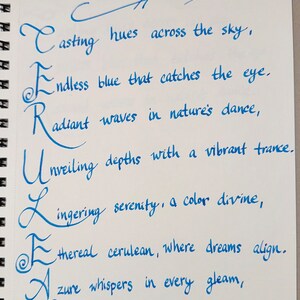 Casting hues across the sky,
Endless blue that catches the eye.
Radiant waves in nature's dance,
Unveiling depths with a vibrant trance.
Lingering serenity, a color divine,
Ethereal cerulean, where dreams align.
Azure whispers in every gleam,